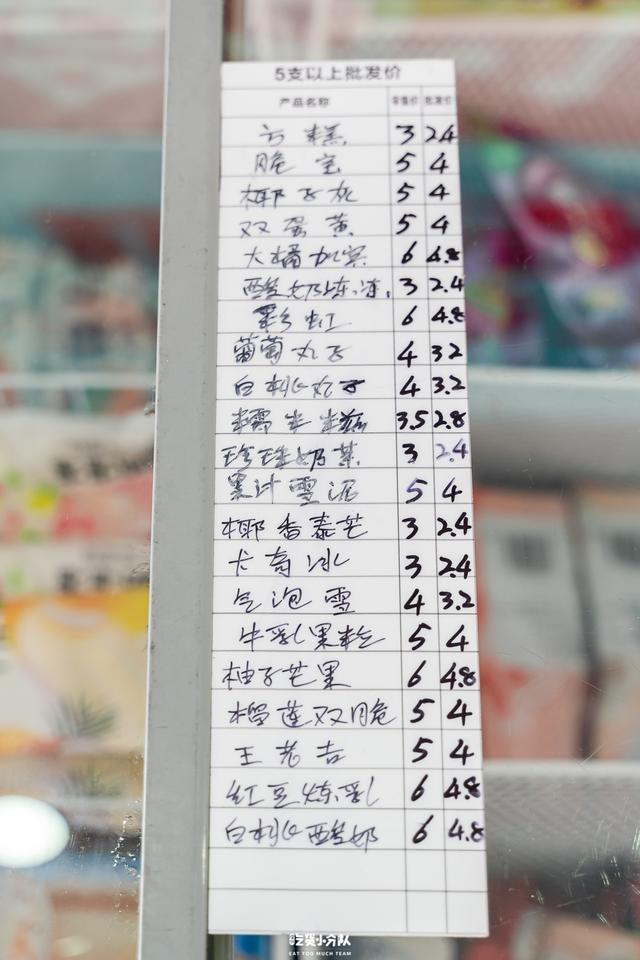 5支以上批发价
产品名称 零售价 批发价
方糕 3 2.4
脆宝 5 4
椰子灰 5 4
双蛋黄 5 4
大橘加宾 6 4.8
酸奶冻冻 3 2.4
彩虹 6 4.8
葡萄丸子 4 3.2
白桃丸子 4 3.2
糯米米糍 3.5 2.8
珍珠奶茶 3 2.4
果汁雪泥 5 4
椰香泰芒 3 2.4
大高冰 3 2.4
气泡雪 4 3.2
牛乳果粒 5 4
柚子芒果 6 4.8
榴莲双脆 5 4
王老吉 5 4
红豆炼乳 6 4.8
白桃酸奶 6 4.8
吃货小分队
EAT TOO MUCH TEAM